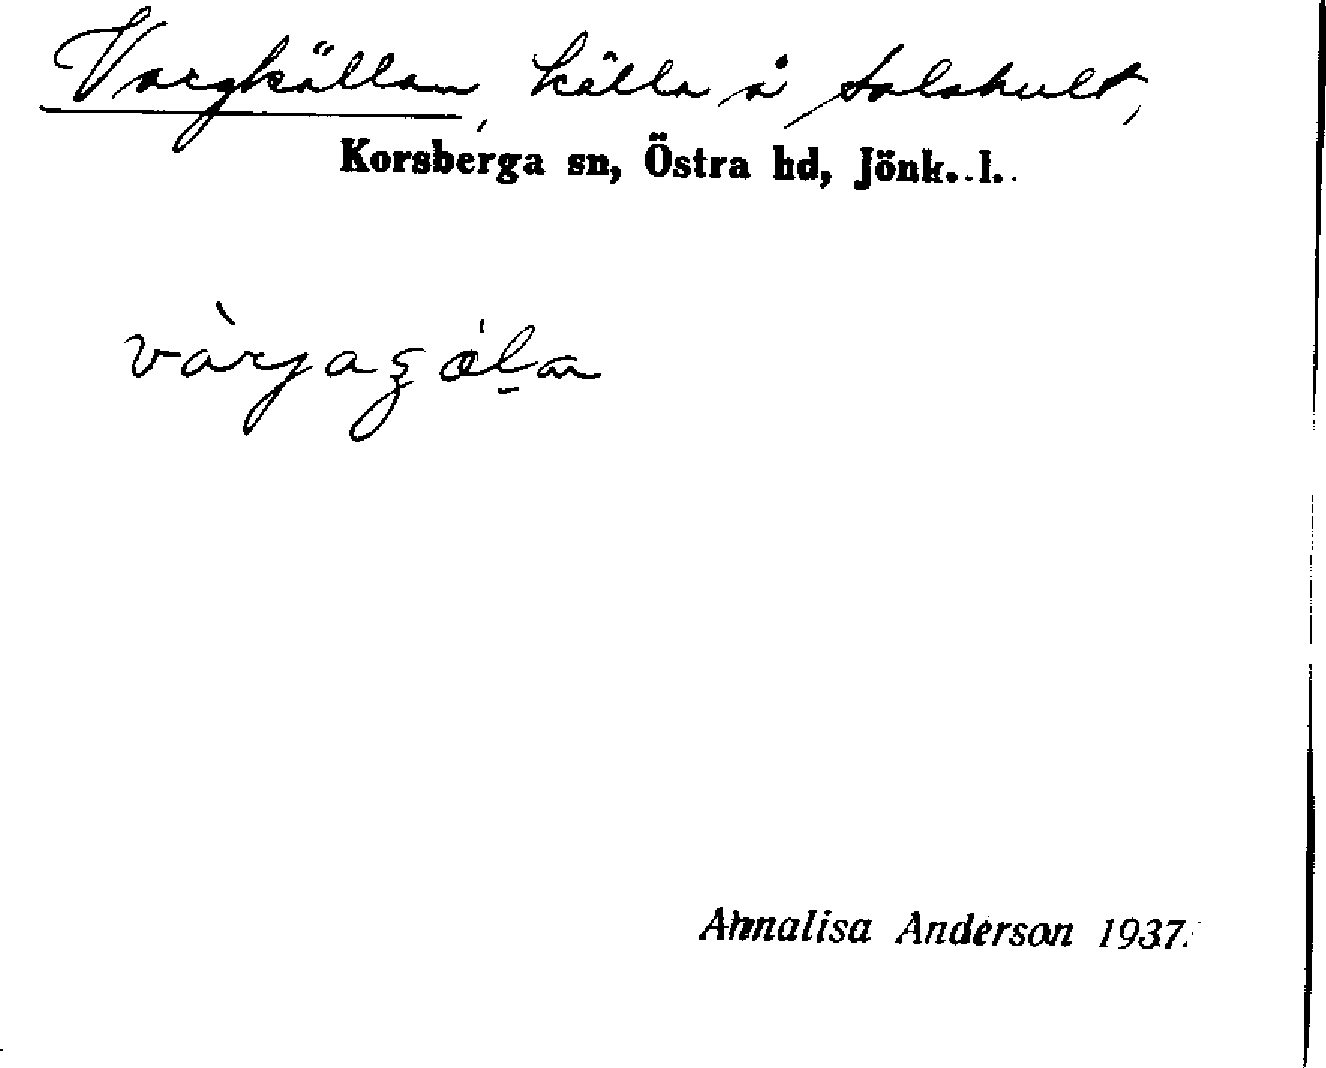 Vargkällan, källa å Salshult,
Korsberga sn, Östra hd, Jönk. l.
Annalisa Anderson 1937.